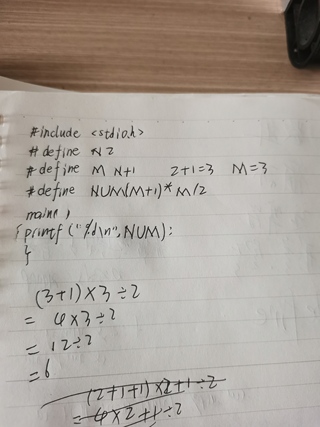 #include <stdio.h>
#define N 2
#define M N+1 2+1=3 M=3
#define NUM(M+1)*M/2
main()
{printf("%d\n",NUM);
}
(3+1)×3÷2
= 4×3÷2
= 12÷2
=6
(2+1+1)×2+1÷2
= 4×2+1÷2